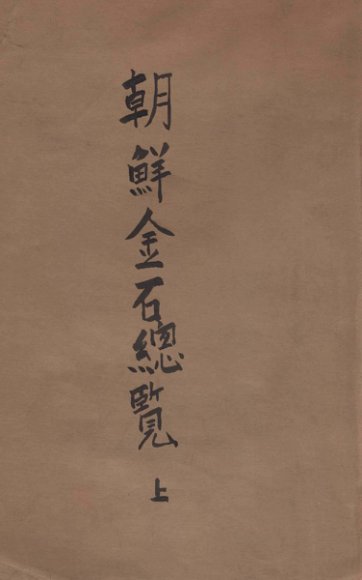 朝鮮金石總覽 上